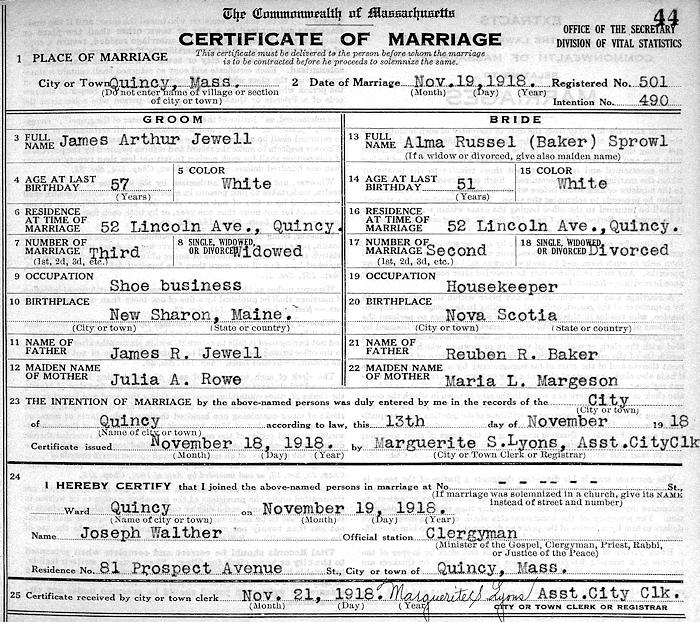 The Commonwealth of Massachusetts
44
CERTIFICATE OF MARRIAGE
OFFICE OF THE SECRETARY
DIVISION OF VITAL STATISTICS
This certificate must be delivered to the person before whom the marriage
is to be contracted before he proceeds to solemnize the same.
1 PLACE OF MARRIAGE
City or Town Quincy, Mass. 2 Date of Marriage Nov.19,1918. Registered No. 501
(Do not enter name of village or section
of city or town)
(Month) (Day) (Year)
Intention No. 490
GROOM
3 FULL NAME James Arthur Jewell
4 AGE AT LAST BIRTHDAY 57
(Years)
5 COLOR
White
6 RESIDENCE AT TIME OF MARRIAGE 52 Lincoln Ave., Quincy.
7 NUMBER OF MARRIAGE Third
(1st, 2d, 3d, etc.)
8 SINGLE, WIDOWED, OR DIVORCED Widowed
9 OCCUPATION
Shoe business
10 BIRTHPLACE
New Sharon, Maine.
(City or town) (State or country)
11 NAME OF FATHER James R. Jewell
12 MAIDEN NAME OF MOTHER Julia A. Rowe
BRIDE
13 FULL NAME Alma Russel (Baker) Sprowl
(If a widow or divorced, give also maiden name)
14 AGE AT LAST BIRTHDAY 51
(Years)
15 COLOR
White
16 RESIDENCE AT TIME OF MARRIAGE 52 Lincoln Ave.,Quincy.
17 NUMBER OF MARRIAGE Second
(1st, 2d, 3d, etc.)
18 SINGLE, WIDOWED, OR DIVORCED Divorced
19 OCCUPATION
Housekeeper
20 BIRTHPLACE
Nova Scotia
(City or town) (State or country)
21 NAME OF FATHER Reuben R. Baker
22 MAIDEN NAME OF MOTHER Maria L. Margeson
23 THE INTENTION OF MARRIAGE by the above-named persons was duly entered by me in the records of the City
(City or town)
of Quincy according to law, this 13th day of November 19 18
(Name of city or town)
Certificate issued November 18, 1918. by Marguerite S.Lyons, Asst.CityClk
(Month) (Day) (Year) (City or Town Clerk or Registrar)
24
I HEREBY CERTIFY that I joined the above-named persons in marriage at No. - - -- - - St.,
(If marriage was solemnized in a church, give its NAME
instead of street and number)
Ward Quincy on November 19, 1918.
(Name of city or town) (Month) (Day) (Year)
Name Joseph Walther Official station Clergyman
(Minister of the Gospel, Clergyman, Priest, Rabbi,
or Justice of the Peace)
Residence No. 81 Prospect Avenue St., City or town of Quincy, Mass.
25 Certificate received by city or town clerk Nov. 21, 1918. Marguerite S Lyons Asst.City Clk.
(Month) (Day) (Year) CITY OR TOWN CLERK OR REGISTRAR